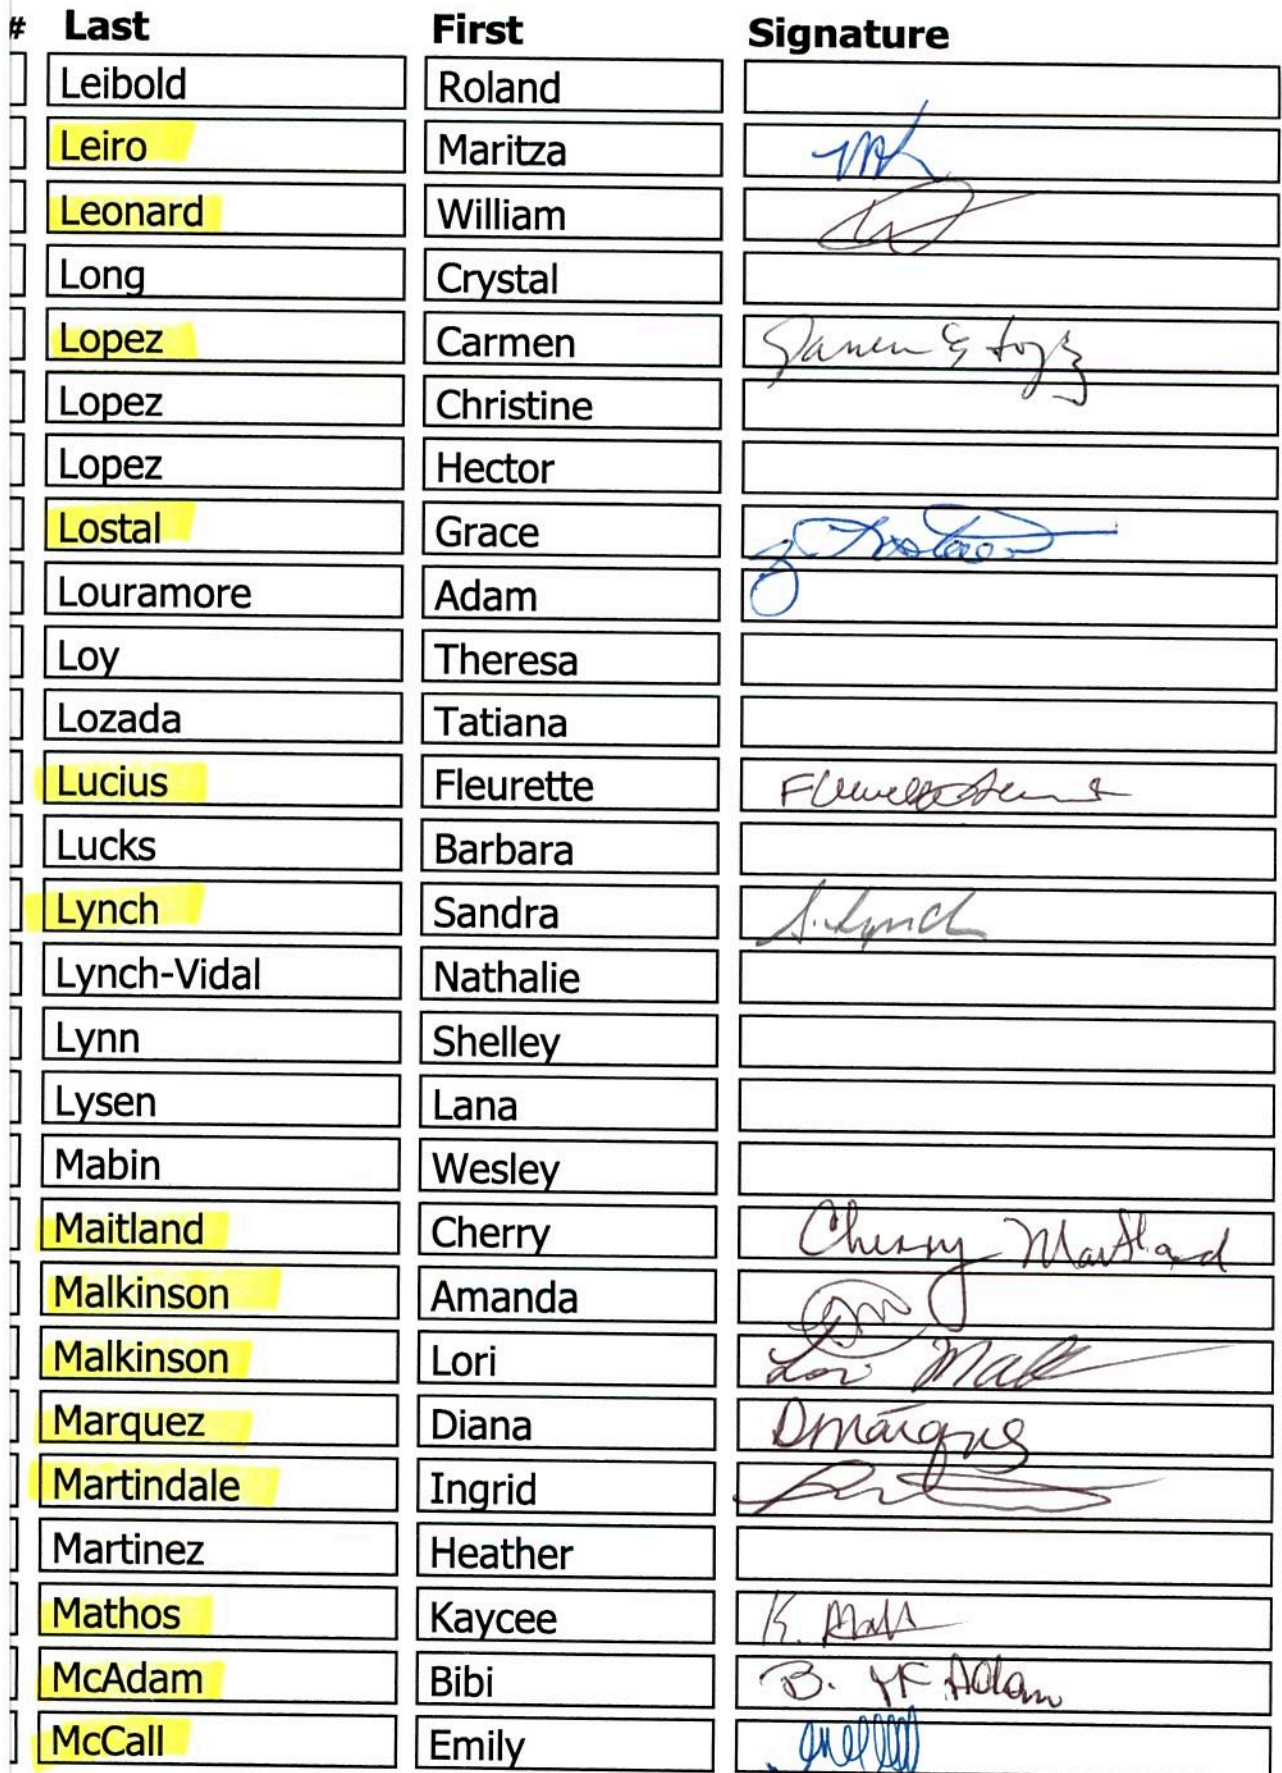 # Last First Signature
Leibold Roland
Leiro Maritza
Leonard William
Long Crystal
Lopez Carmen
Lopez Christine
Lopez Hector
Lostal Grace
Louramore Adam
Loy Theresa
Lozada Tatiana
Lucius Fleurette
Lucks Barbara
Lynch Sandra S. Lynch
Lynch-Vidal Nathalie
Lynn Shelley
Lysen Lana
Mabin Wesley
Maitland Cherry Cherry Maitland
Malkinson Amanda
Malkinson Lori Lori
Marquez Diana
Martindale Ingrid
Martinez Heather
Mathos Kaycee K.
McAdam Bibi B. McAdam
McCall Emily